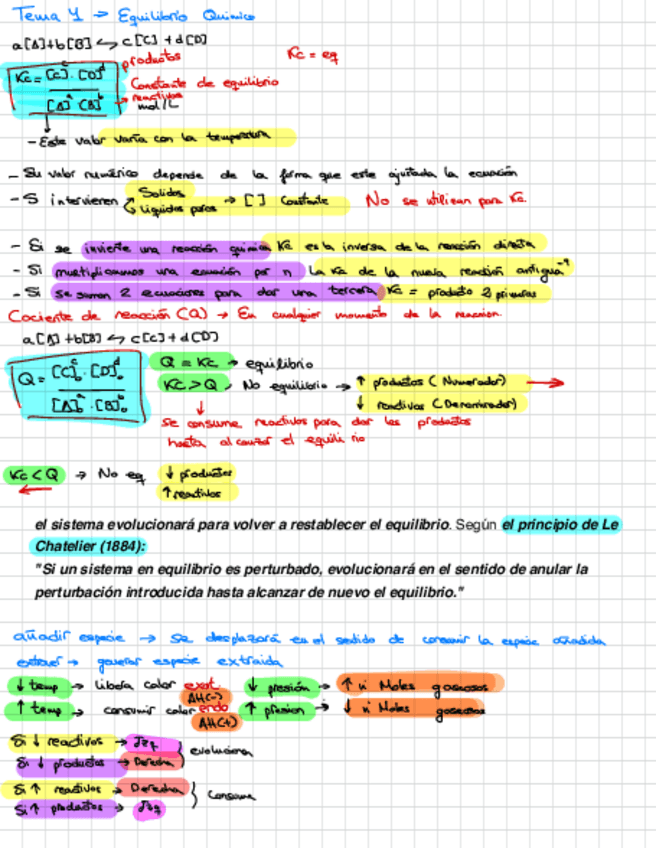 Tema 4 → Equilibrio Químico
a[A]+b[B] ↔ c[C]+d[D]
Kc = eq
Kc = [C]ᶜ · [D]ᵈ productos
Constante de equilibrio
[A]ᵃ [B]ᵇ → reactivos
mol/L
- Este valor varía con la temperatura
- Su valor numérico depende de la forma que este ajustada la ecuación
- S intervienen Solidos
Liquidos puros → [ ] Constante No se utilizan para Kc
- Si se invierte una reacción quimica Kc es la inversa de la reacción directa
- Si multiplicamos una ecuación por n la Kc de la nueva reacción antigua
- Si se suman 2 ecuaciones para dar una tercera Kc = producto 2 primeras
Cociente de reacción (Q) → En cualquier momento de la reaccion.
a[A]+b[B] ↔ c[C]+d[D]
Q = [C]ᶜ₀ · [D]ᵈ₀
[A]ᵃ₀ · [B]ᵇ₀
Q = Kc → equilibrio
Kc > Q, No equilibrio → ↑ productos (Numerador) →
↓ reactivos (Denominador)
↓
Se consume reactivos para dar los productos
hasta alcanzar el equilibrio
Kc < Q → No eq ↓ productos
← ↑ reactivos
el sistema evolucionará para volver a restablecer el equilibrio. Según el principio de Le
Chatelier (1884):
"Si un sistema en equilibrio es perturbado, evolucionará en el sentido de anular la
perturbación introducida hasta alcanzar de nuevo el equilibrio."
añadir especie → se desplazará en el sentido de consumir la especie añadida
extraer → generar especie extraida
↓ temp → libera calor exot. ΔH(-) ↓ presión → ↑ nº Moles gaseosos
↑ temp → consumir calor endo ΔH(+) ↑ presion → ↓ nº Moles gaseosos
Si ↓ reactivos → Izq
Si ↓ productos → Derecha
Si ↑ reactivos → Derecha } Consume
Si ↑ productos → Izq